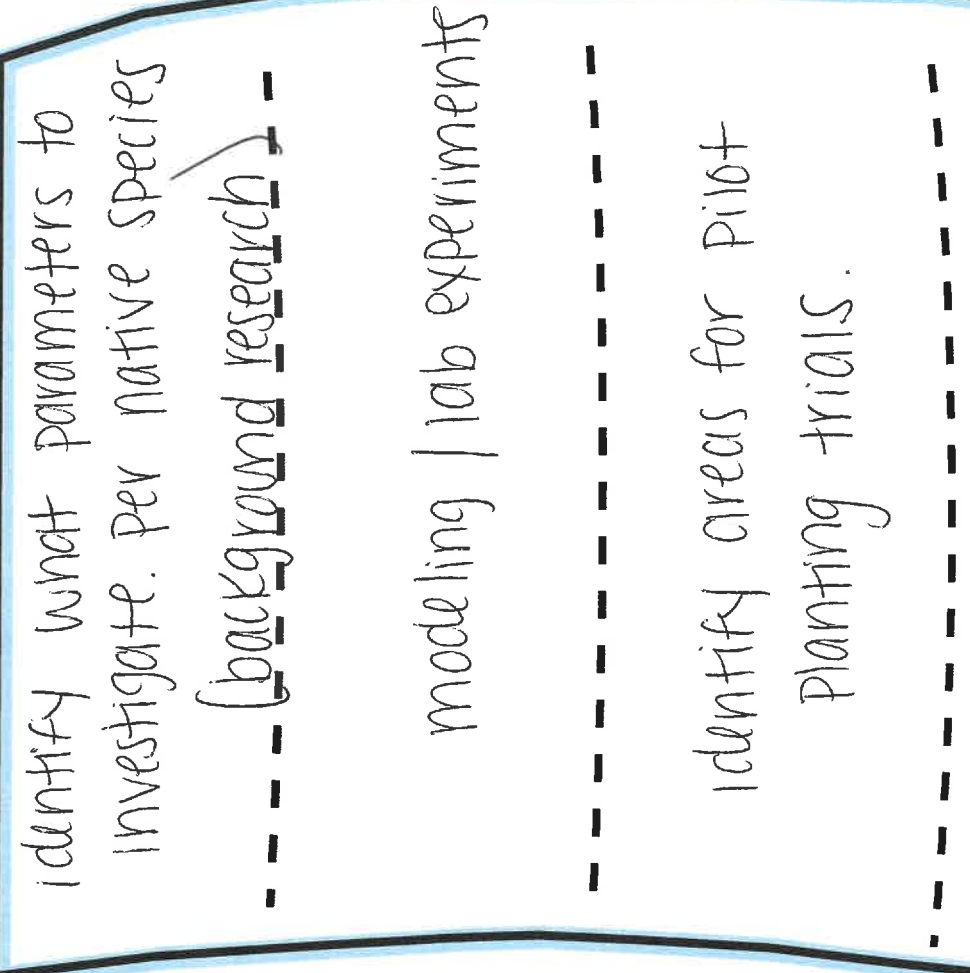 identify what parameters to
investigate. per native species
(background research)
modeling / lab experiments
identify areas for pilot
planting trials.